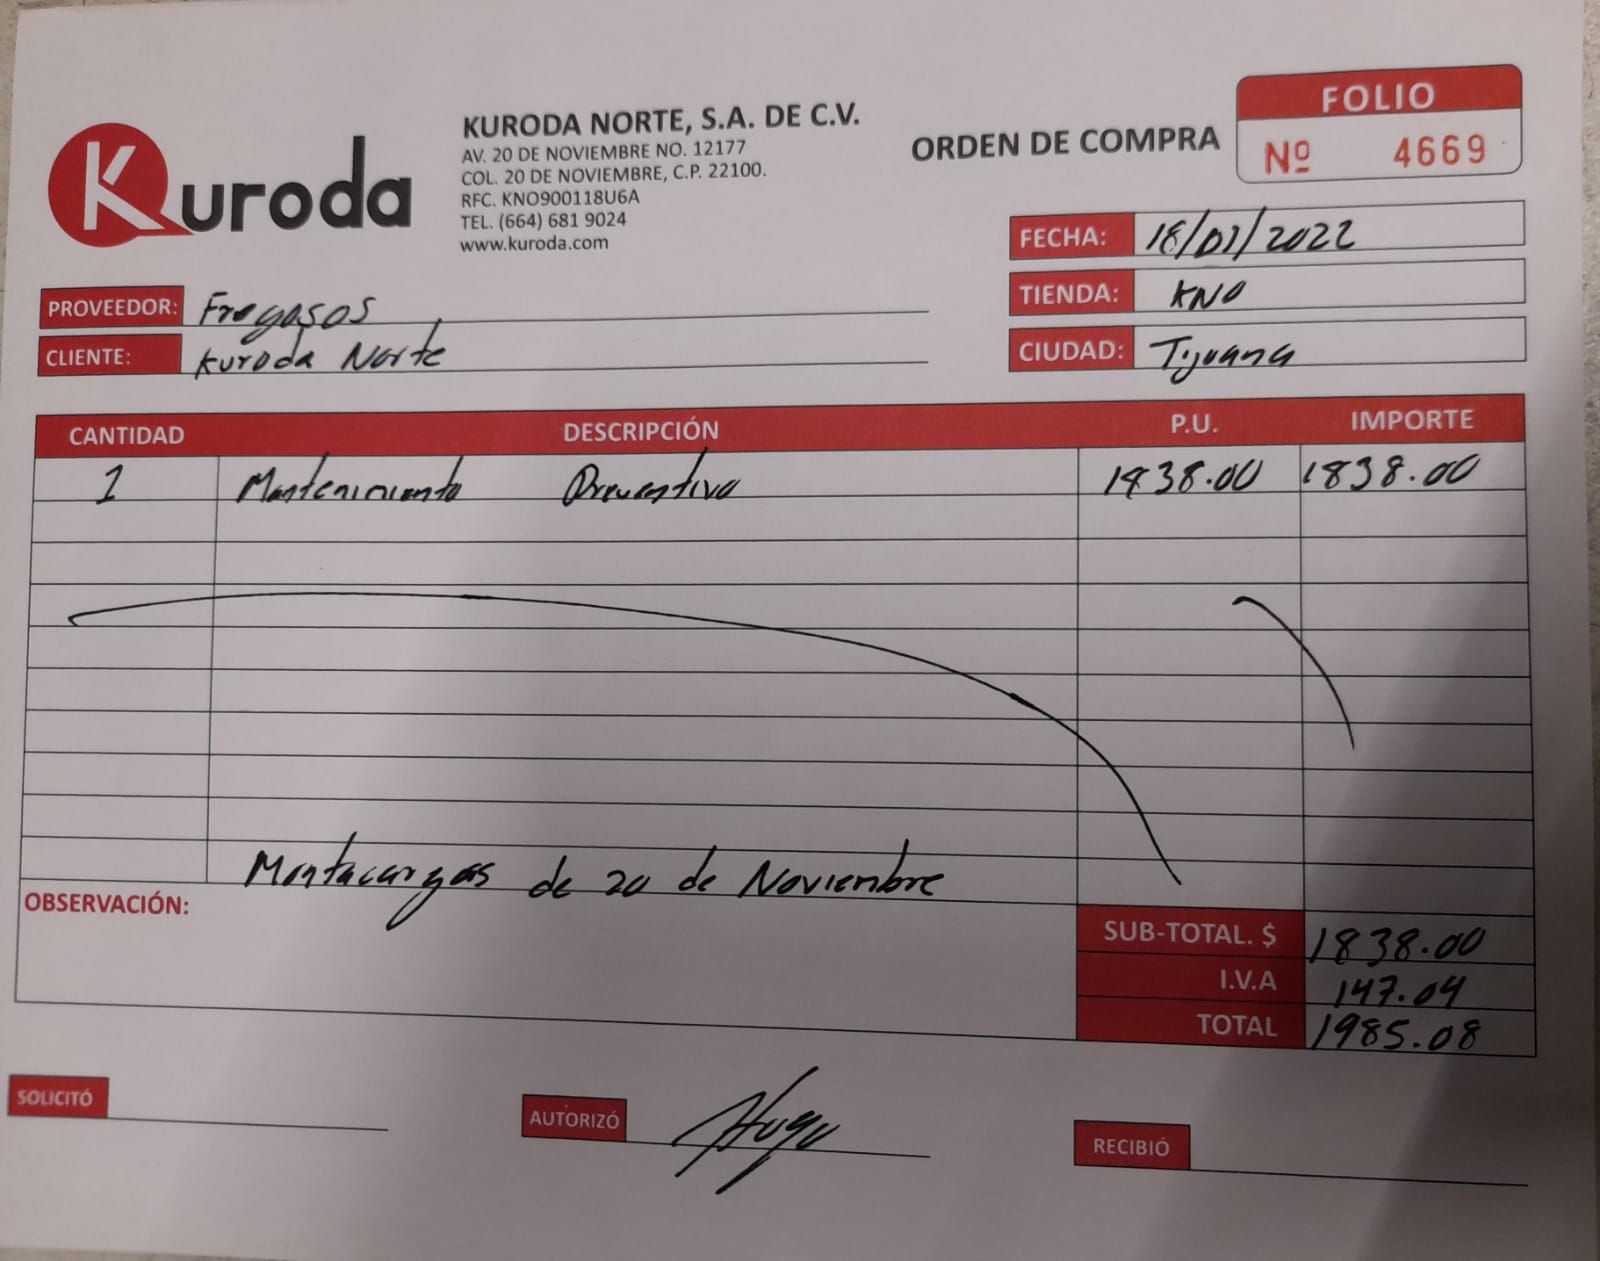 Kuroda
KURODA NORTE, S.A. DE C.V.
AV. 20 DE NOVIEMBRE NO. 12177
COL. 20 DE NOVIEMBRE, C.P. 22100.
RFC. KNO900118U6A
TEL. (664) 681 9024
www.kuroda.com
ORDEN DE COMPRA
FOLIO
Nº 4669
FECHA: 18/01/2022
TIENDA: KNO
CIUDAD: Tijuana
PROVEEDOR: Fregosos
CLIENTE: Kuroda Norte
CANTIDAD DESCRIPCIÓN P.U. IMPORTE
1 Mantenimiento Preventivo 1838.00 1838.00
Montacargas de 20 de Noviembre
OBSERVACIÓN:
SUB-TOTAL. $ 1838.00
I.V.A 147.04
TOTAL 1985.08
SOLICITÓ
AUTORIZÓ Hugo
RECIBIÓ